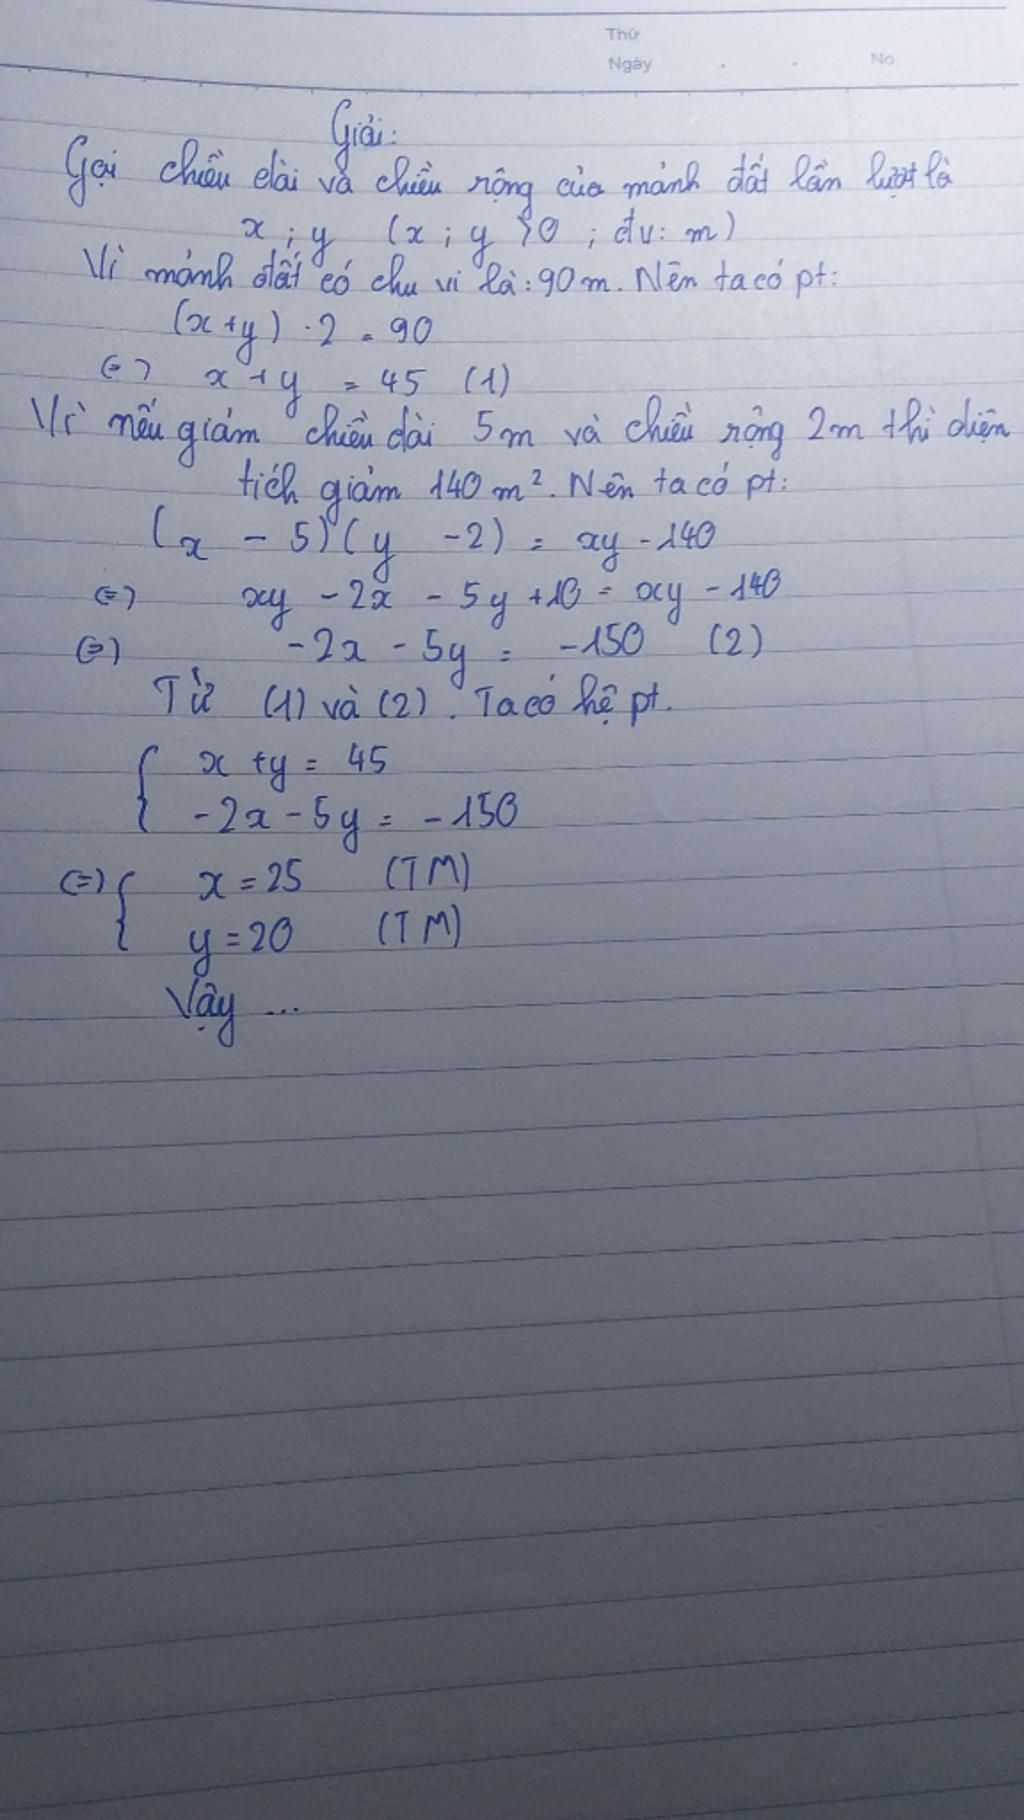 Thứ
Ngày . . No
Giải:
Gọi chiều dài và chiều rộng của mảnh đất lần lượt là
x ; y (x ; y > 0 ; đv: m)
Vì mảnh đất có chu vi là: 90 m. Nên ta có pt:
(x + y) . 2 = 90
(=) x + y = 45 (1)
Vì nếu giảm chiều dài 5m và chiều rộng 2m thì diện
tích giảm 140 m². Nên ta có pt:
(x - 5)(y - 2) = xy - 140
(=) xy - 2x - 5y + 10 = xy - 140
(=) -2x - 5y = -150 (2)
Từ (1) và (2). Ta có hệ pt.
{ x + y = 45
-2x - 5y = -150
(=) { x = 25 (TM)
y = 20 (TM)
Vậy ...